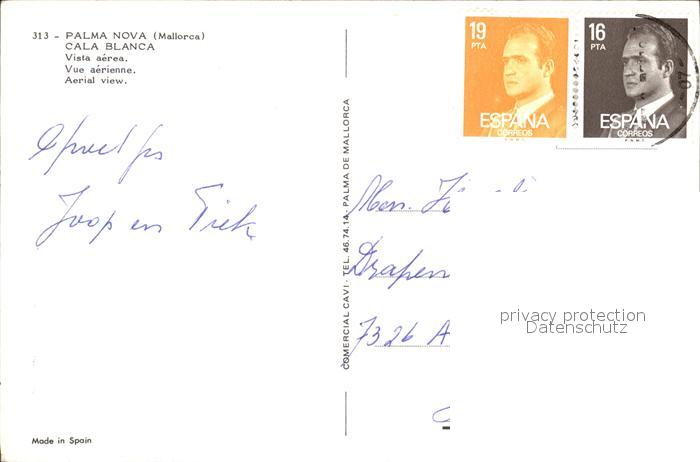 313 - PALMA NOVA (Mallorca)
CALA BLANCA
Vista aérea.
Vue aérienne.
Aerial view.
Joop en
Made in Spain
COMERCIAL CAVI - TEL. 46.74.14 - PALMA DE MALLORCA
19
PTA
ESPAÑA
CORREOS
F.N.M.T.
16
PTA
ESPAÑA
CORREOS
F.N.M.T.
07
7326 A
privacy protection
Datenschutz